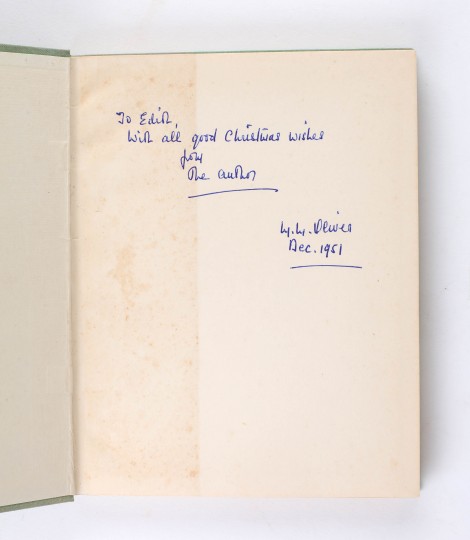 To Edith,
With all good Christmas wishes
from
The author
Dec. 1951